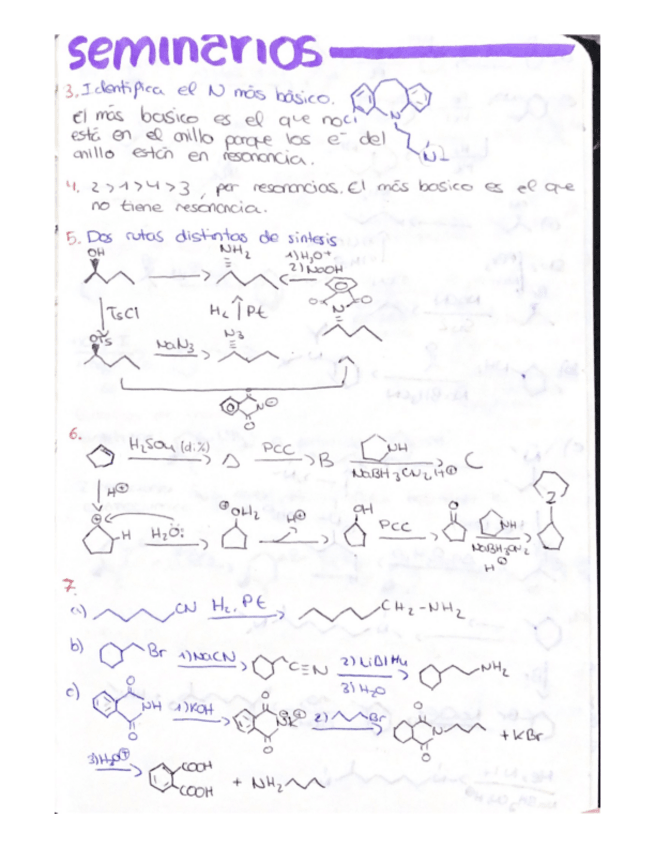 seminarios
3. Identifica el N más básico.
El más basico es el que no
está en el anillo porque los e⁻ del
anillo están en resonancia.
N
N
4. 2>1>4>3, por resonancias. El más basico es el que
no tiene resonancia.
5. Dos rutas distintas de síntesis
OH
NH₂
1) H₃O⁺
2) NaOH
TsCl
H₂ Pt
O O
N
OTs
NaN₃
N₃
O
N⊖
O
6.
H₂SO₄ (dil) A PCC B NH C
NaBH₃CN, H⊕
H⊕
⊕ H H₂O: ⊕OH₂ H⊕ OH PCC O NH N
NaBH₃CN
H⊕
7.
a) CN H₂, Pt CH₂-NH₂
b) Br 1) NaCN C≡N 2) LiAlH₄ NH₂
3) H₂O
c) O NH O 1) KOH O N⊖ K⊕ O 2) Br O N O + KBr
3) H₃O⊕ COOH
COOH + NH₂